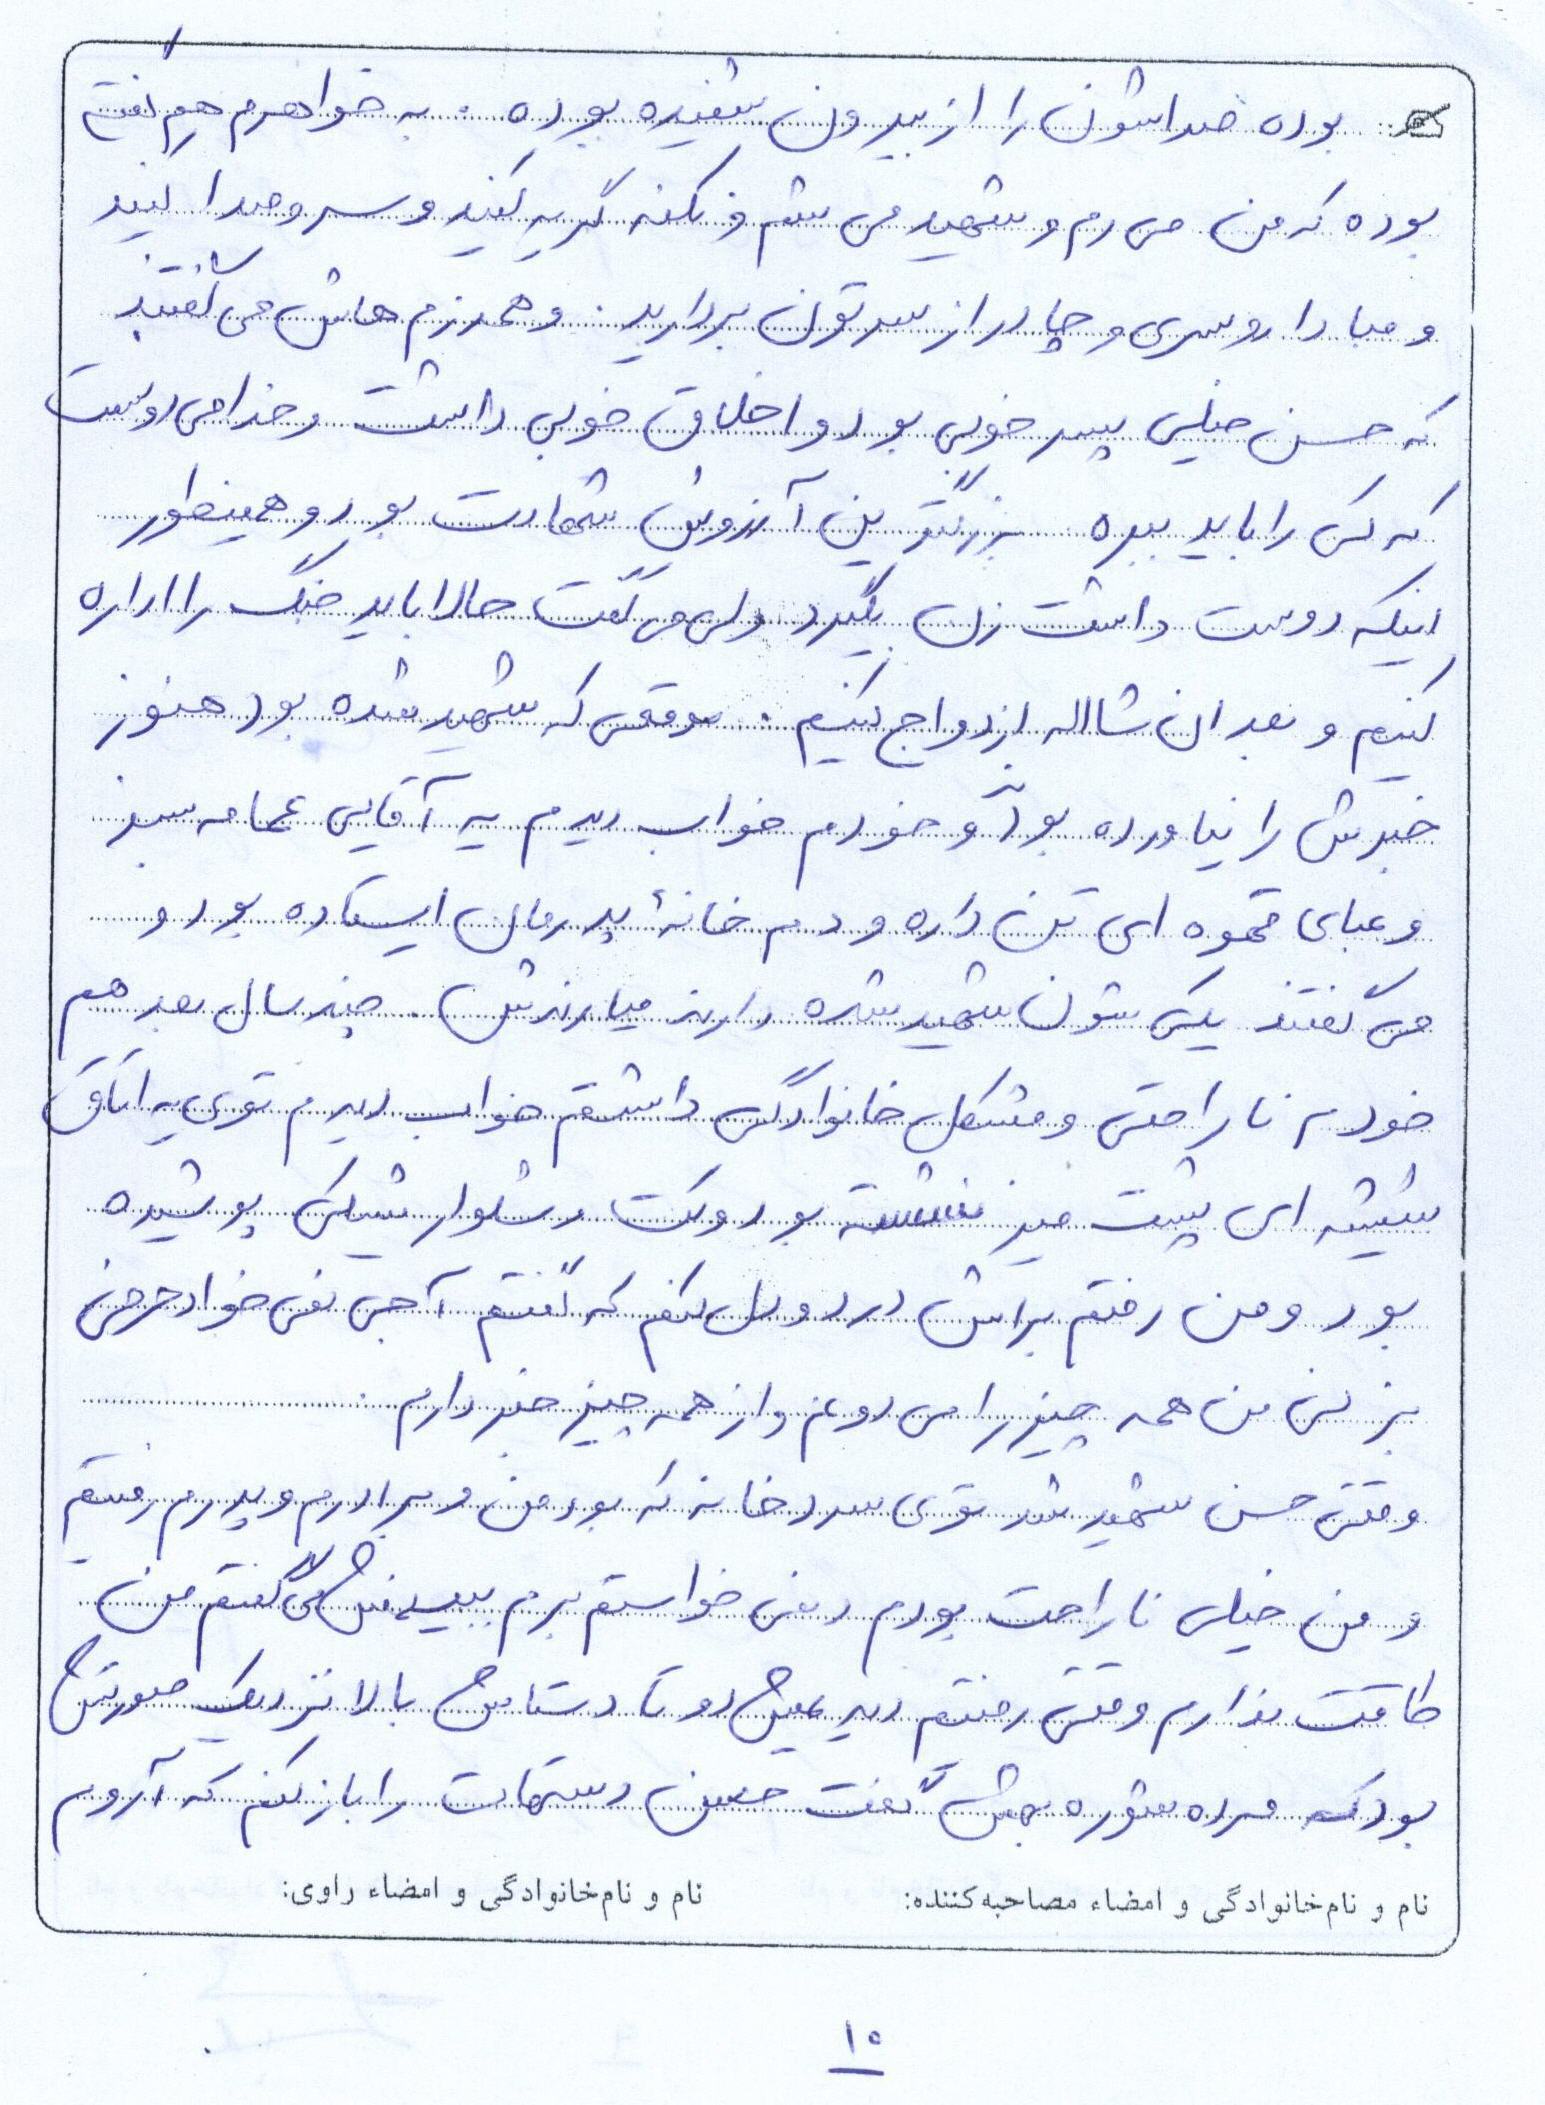 بوده صداشون را از بیرون شنیده بوده . به خواهرم هم گفته
بوده که من می رم و شهید می شم و نکنه گریه کنید و سر و صدا کنید
و مبادا روسری و چادر از سرتون بردارید . و همرزم هاش می گفتند
که حسن خیلی پسر خوبی بود و اخلاق خوبی داشت و خدا می دونست
که کی را باید ببره بزرگترین آرزوش شهادت بود و همینطور
اینکه دوست داشت زن بگیرد ولی می گفت حالا باید جنگ را اداره
کنیم و بعد ان شااله ازدواج کنیم . موقعی که شهید شده بود هنوز
خبرش را نیاورده بودند و خودم خواب دیدم یه آقایی عمامه سبز
و عبای قهوه ای تن داره و دم خانهٔ پدرمان ایستاده بود و
می گفتند یکی شون شهید شده دارند میارندش . چند سال بعد هم
خودم ناراحتی و مشکل خانوادگی داشتم خواب دیدم توی یه اتاق
شیشه ای پشت میز نشسته بود و کت و شلوار شیکی پوشیده
بود و من رفتم براش درد و دل بکنم که گفتم آجی نمی خواد حرفی
بزنی من همه چیز را می دونم و از همه چیز خبر دارم .
وقتی حسن شهید شد توی سردخانه که بود من و برادرم و پدرم رفتیم
و من خیلی ناراحت بودم و نمی خواستم برم ببینمش می گفتم من
طاقت ندارم وقتی رفتم دیدمش دو تا دستاش بالا نزدیک صورتش
بود که مرده شوره بهش گفت حسن دستهات را باز کنم که آروم
نام و نام‌خانوادگی و امضاء مصاحبه‌کننده: نام و نام‌خانوادگی و امضاء راوی:
۱۰